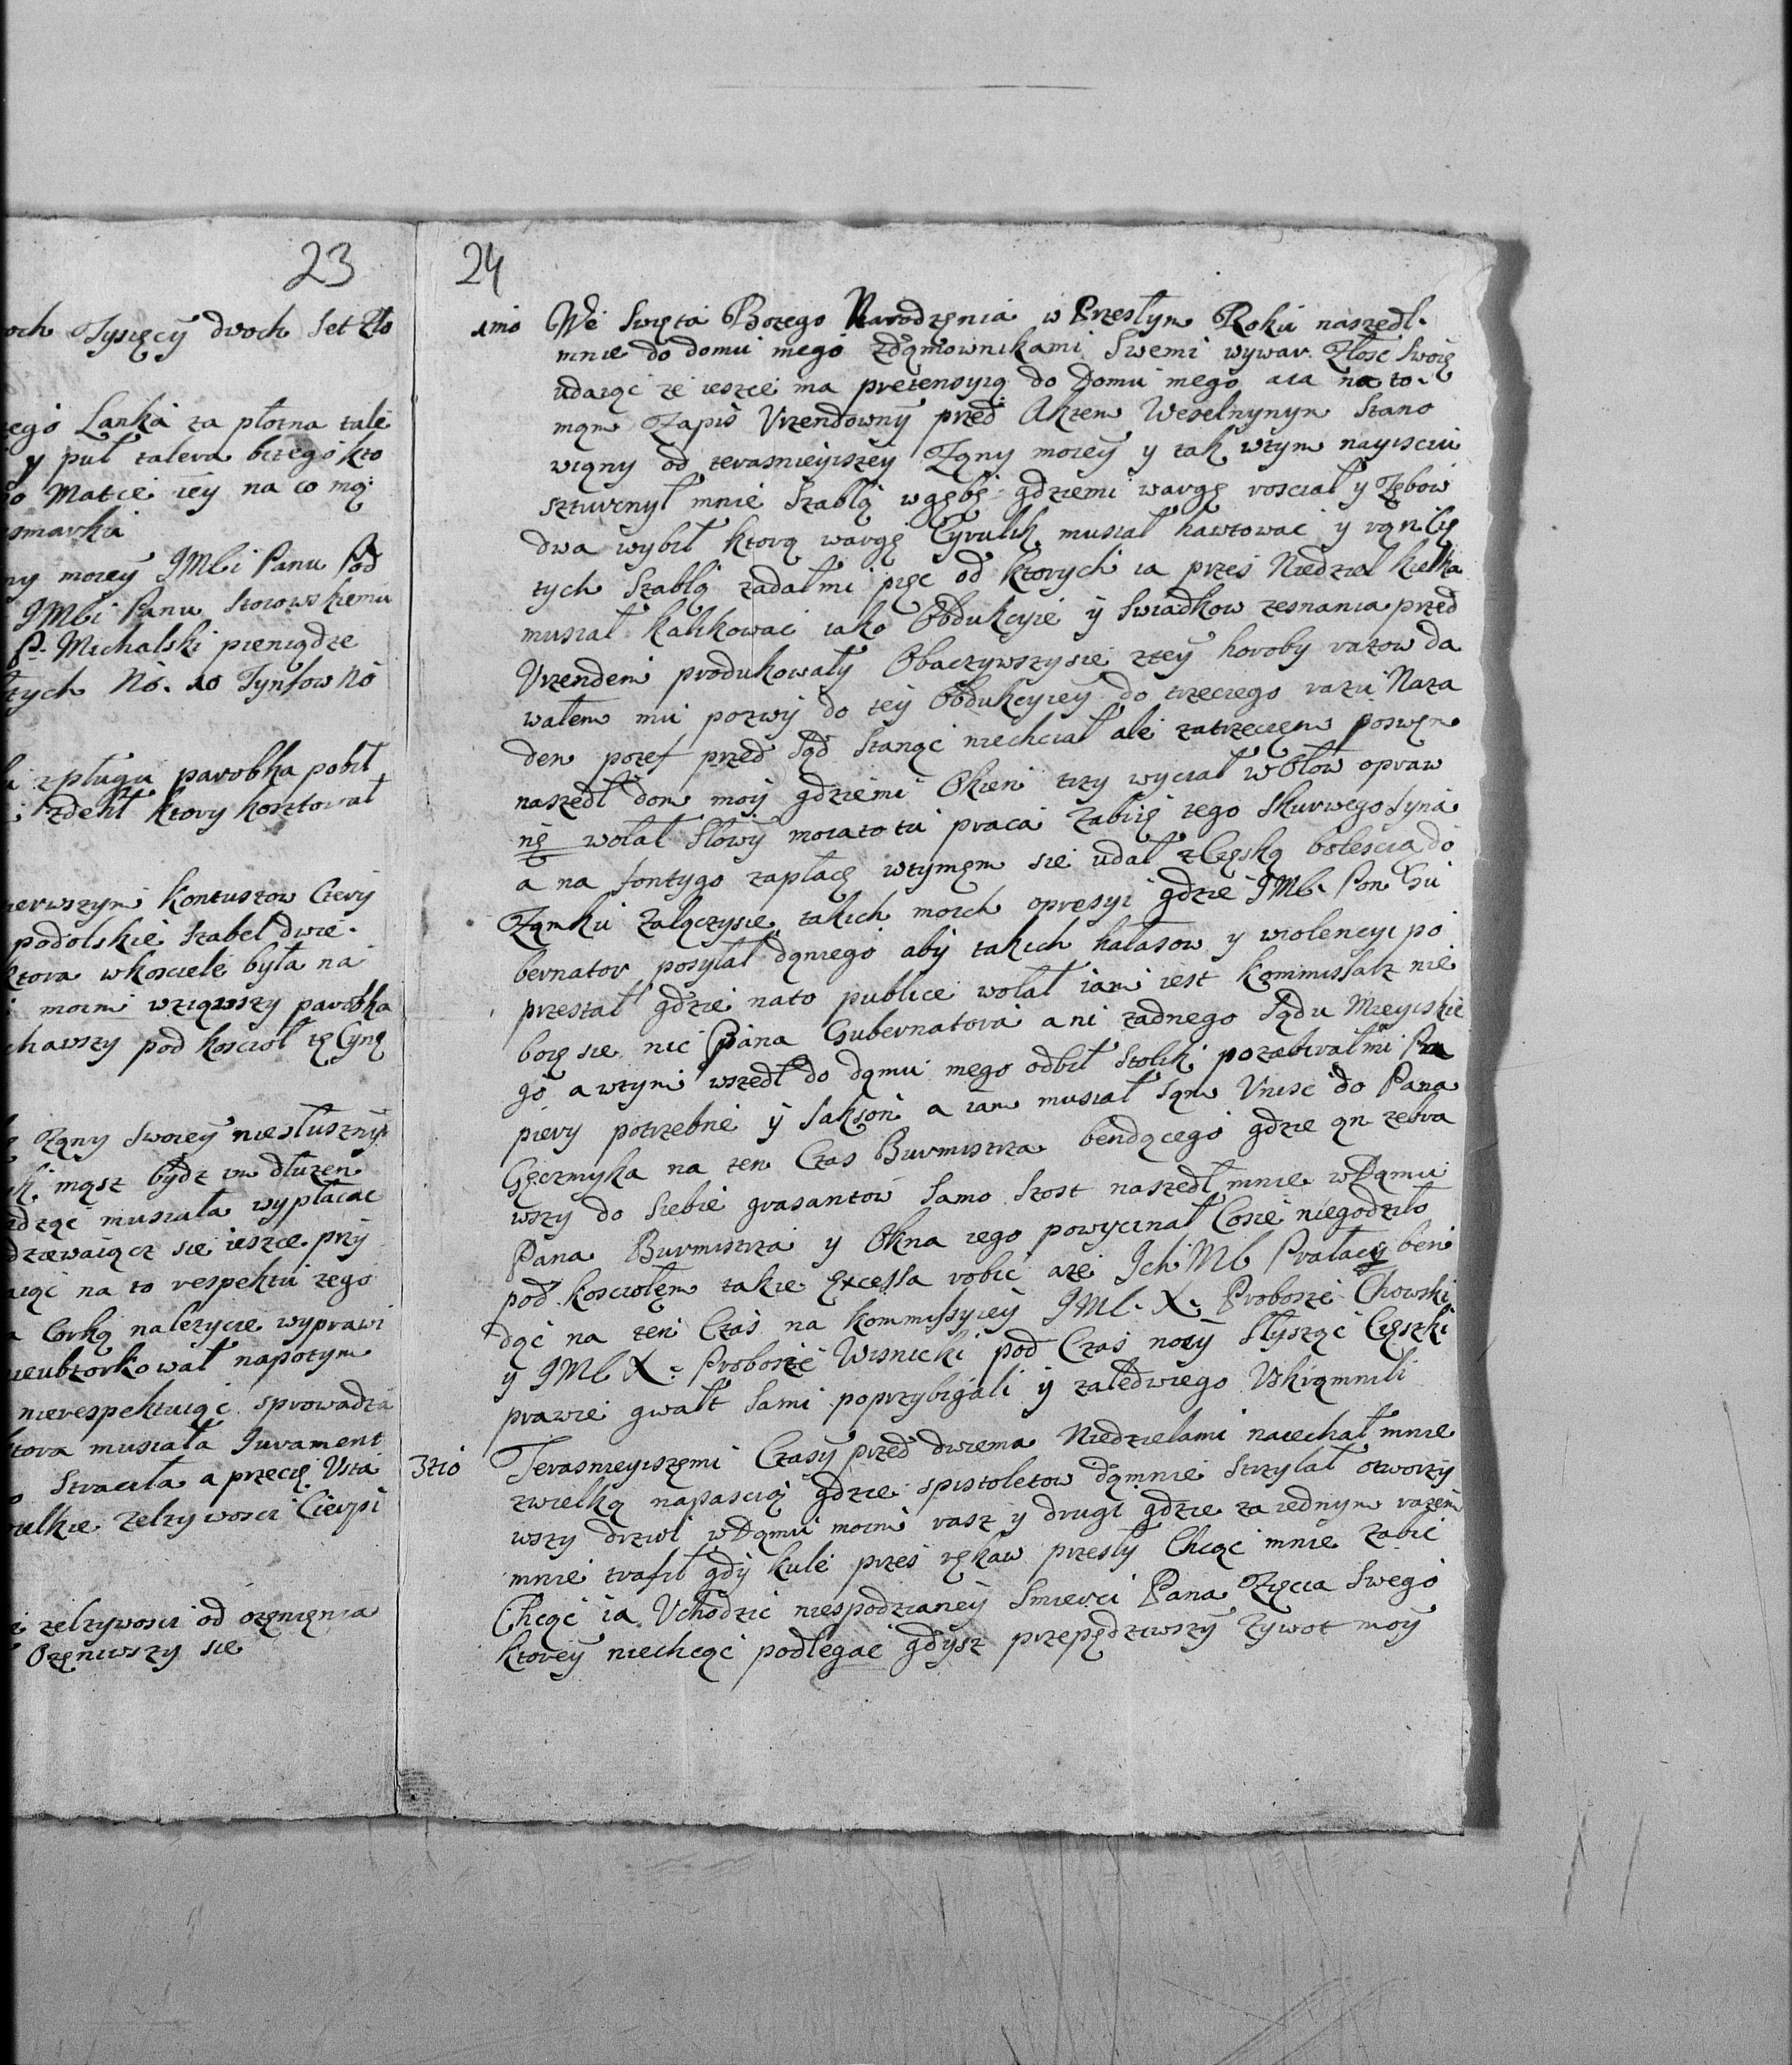 23
och Tysięcÿ dwoch set Zło
ego Lanka za płotna tale
y puł talera bitego kto
Matce iey na co mą
smarka
ny moieÿ JMCi Panu Pod
JMCi Panu Stoiowskiemu
P. Michalski pieniądze
tych No. 10 Tynfow No
z pługu parobka pobił
zdehł ktory kosztował
ierwszym kontuszow Cterÿ
podolskie Szabel dwie
ktora wkosciele była na
moim wziąwszy parobka
chawszy pod koscioł tę Cynę
Zany Swoieÿ niesłusznÿ
masz bydz dłuzen
musiała wypłacac
dziewaiącz sie ieszce przÿ
aiąc na to respektu tego
Corkę nalezycie wyprawi
nieubtorkował napotym
nierespektuiąc sprowadza
ktora musiała Iurament
Straciła a przecię Usta
wielkie zelzywosci Cierpi
zelzywosci od ozęnięnia
Ozęniwszy się
24
1mo We swięta Bozego Narodzęnia w Przesłym Roku naszedł
mnie do domu mego zdąmownikami Swemi wywar. Złosc Swoię
udaiąc ze ieszce ma pretensyią do Domu mego a ia na to
mąm Zapis Urzendownÿ przed Aktem Weselnynym Stano
wiąny od terasnieyiszeÿ Ząny moieÿ y tak wtym nayisciu
szturcnył mnie Szablą wgębę gdziemi wargę rosciał y Zębow
dwa wybił ktorą wargę Cyrulik musiał hawtowac y rąn Cię
tych Szablą zadał mi pięc od ktorych ia przes Niedziel kielka
musiał kalikowac iako Obdukcyie ÿ Swiadkow zesnania przed
Urzendem produkowałÿ Obaczywszy sie zteÿ horoby razow da
wałem mu pozwÿ do teÿ Obdukcyieÿ do trzeciego razu Naza
den pozef przed Sąd Stanąc niechciał ale zatrzecięm poswęm
naszedł dom moÿ gdziemi Okien trzy wyciał wOłow opraw
nę wołał Słowÿ moiato tu praca zabiię tego Skurwego syna
a na fontygo zapłacę wtymęm sie udał zCięską bolescia do
Ząmku Zalączysie takich moich opresyi gdzie JMC. Pan Gu
bernator posyłał dąniego abÿ takich hałasow y wiolencyi po
przestał gdzie nato publice wołał iam iest kommissarz nie
boię sie nic Pana Gubernatora ani zadnego Sądu Mieyiskie
go awtym wszedł do dąmu mego odbił Stolik pozabirał mi Pa
piery potrzebne ÿ Saksoni a iam musiał sąm Uniść do Pana
Gęczmyka na ten Czas Burmistrza bendącego gdzie ąn zebra
wszy do siebie grasantow Samo Szost naszedł mnie wDąmu
Pana Burmistrza y Okna iego powycinał Cosie niegodziło
pod kosciołęm takie Excessa robic aze IchMC Prałacÿ ben
dąc na ten Czas na kommissyieÿ JMC. X. Proboszc Chowski
y JMC X. Proboszc Wisnicki pod Czas nocÿ słysząc Cięszki
prawie gwałt sami poprzybigali ÿ zaledwiego Uskrąmnili
3tio Terasnieyiszęmi Czasÿ przed dwiema Niedzielami naiechał mnie
zwielką napascią gdzie spistoletow dąmnie Strzylał otworzÿ
wszy drzwi wDąmu moim rasz y drugi gdzie za iednym razęm
mnie trafił gdÿ kule przes rękaw przesłÿ Chcąc mnie zabic
Chcąc ia Uchodzic niespodzianeÿ Smierci Pana Zięcia Swego
ktoreÿ niechcąc podlegac gdysz przepędziwszÿ zywot moÿ